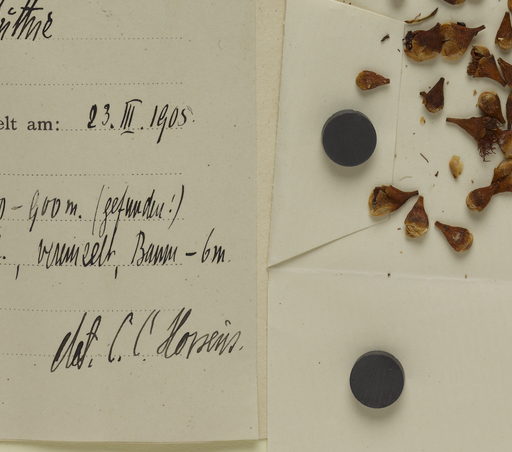 elt am: 23. III. 1905
– 900 m. (gefunden!)
, vereinzelt, Baum – 6m
det. C. C. Hosseus.